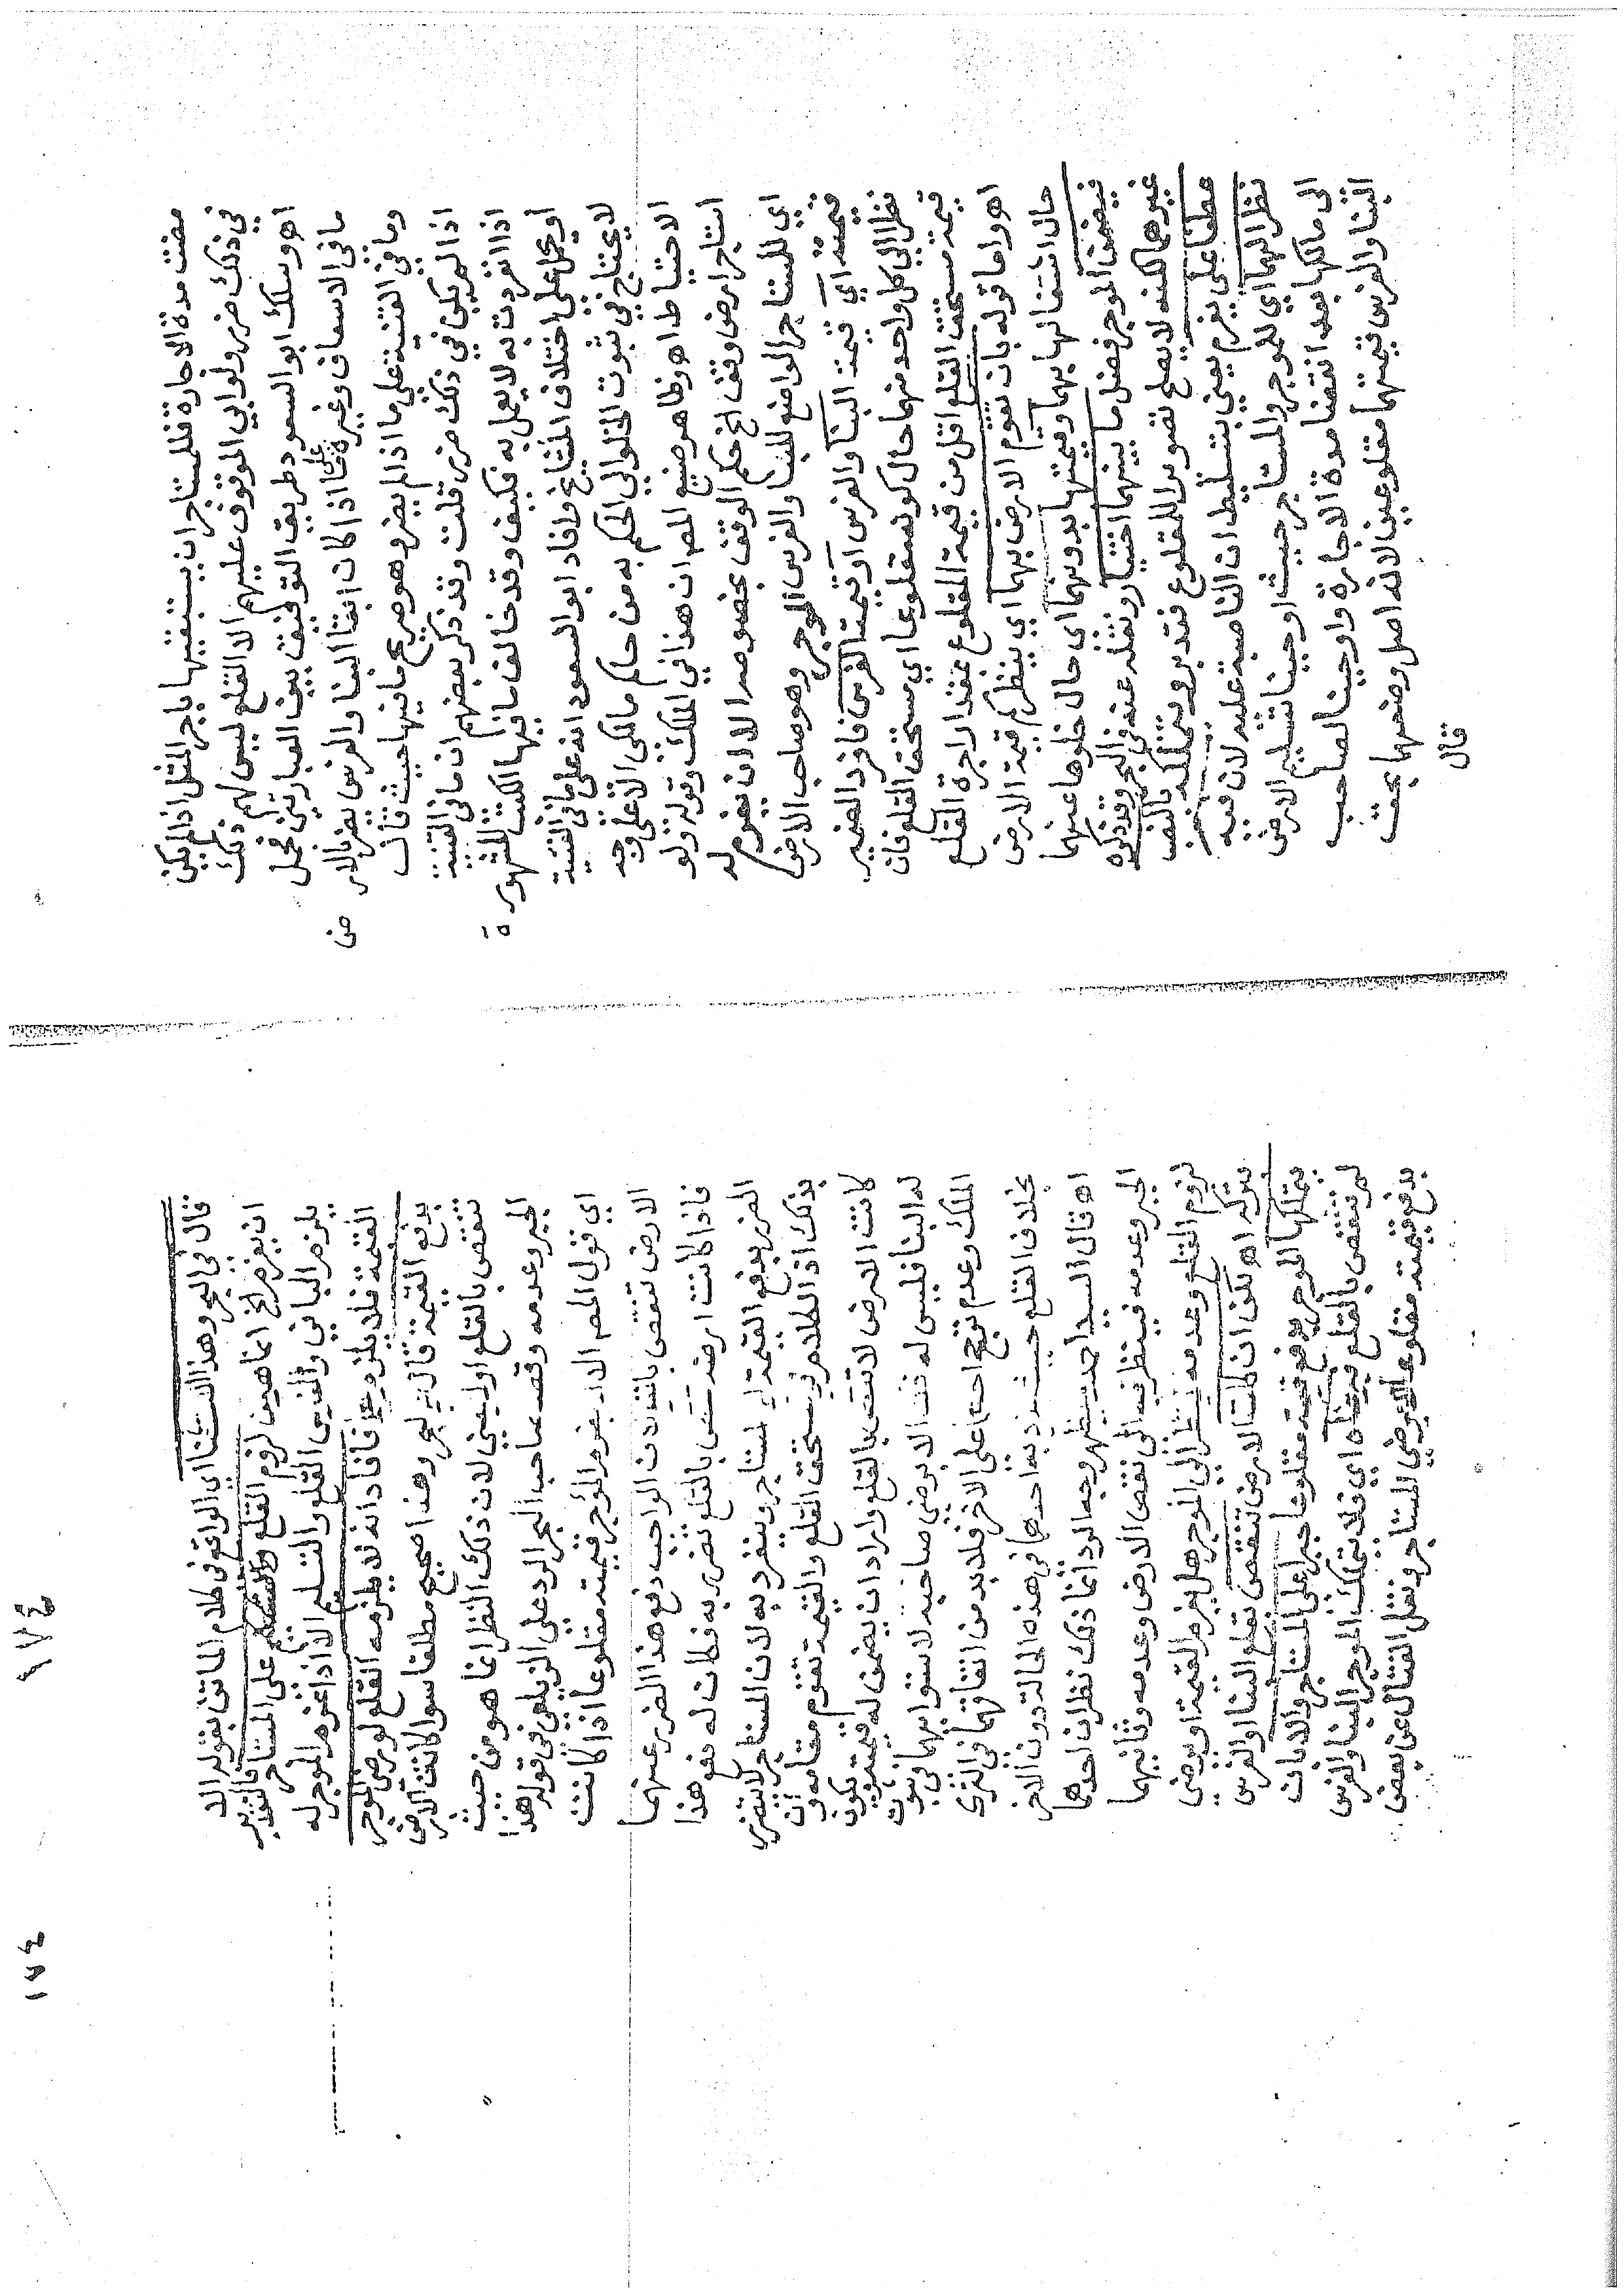 مضت مدة الاجارة فللمستاجر ان يستبقيها باجر المثل اذا لم يكن
في ذلك ضرر ولو ابي الموقوف عليهم الا القلع ليس لهم ذلك
اهـ وسلك ابو السعود طريق التوفيق بين العبارتين فحمل
ما في الاسعاف وغيره على ما اذا كان ابقا البنا والغرس يضر بالارض
وما في القنية على ما اذا لم يضر وهو صريح ما فيها حيث قال
اذا لم يكن في ذلك ضرر قلت وقد ذكر بعضهم ان ما في القنية
اذا انفردت به لا يعمل به فكيف وقد خالف ما فيها الكتب المشهورة
او يحمل على اختلاف المشايخ وافاد ابو السعود انه على ما في القنية
لا يحتاج في ثبوت الخلو الى الحكم به من حاكم مالكي الا على وجه
الاحتياط اهـ وظاهر صنيع المص ان هذا في الملك وقوله ولو
استاجر ارض وقف الخ حكم الوقف بخصوصه الا ان يغرم له
اي للمستاجر الواضع للبنا والغرس الموجر وهو صاحب الارض
قيمته اي قيمة البنا والغرس او قيمة الغرس فافرد الضمير
نظرا الى كل واحد منهما حال كونه مقلوعا اي مستحق القلع فان
قيمة مستحق القلع اقل من قيمة المقلوع بمقدار اجرة القلع
اهـ واما قوله بان تقوم الارض بهما اي ينظر كم قيمة الارض
حال اشتغالها بهما وقيمتها بدونهما اي حال خلوها عنهما
فيضمن الموجر فضل ما بينهما اختيار ونقله عنه في البحر وقد ذكره
غيرهما لكنه لا يصلح تصوير اللمقلوع فتدبر ويتملكه بالنصب
عطفا على يغرم يعني بتسليط ان الناصبة عليه لان فيه
نظرا لهما اي للموجر والمستاجر حيث اوجبنا تسليم الارض
الى مالكها بعد انقضا مدة الاجارة واوجبنا لصاحب
البنا والغرس قيمتهما مقلوعين لانه اصل وضعهما بحق
قال
قال في البحر وهذا الاستثنا اي الواقع في كلام الماتن بقوله الا
ان يغرم الخ انما هو من لزوم القلع على المستاجر
يلزم الباني والغارس القلع والتسليم الا اذا غرم الموجر له
القيمة فلا يلزمه فافاد انه لا يلزمه القلع لو رضى الموجر
بدفع القيمة قال في البحر وهذا صحيح مطلقا سوا كانت الارض
تنقص بالقلع او لا يعني لان ذلك النظر انما هو من حيث
الجبر وعدمه وقصد صاحب البحر الرد على الزيلعي في قوله هذا
اي قول المص الا ان يغرم المؤجر قيمته مقلوعا اذا كانت
الارض تنقص بالقلع لان الواجب دفع هذا الضرر عنهما
فاذا كانت ارضه تنقص بالقلع تضرر به فكان له دفع هذا
الضرر بدفع القيمة الى المستاجر وينفرد به لان المستاجر لا يتضرر
بذلك اذ الكلام في مستحق القلع والقيمة تقوم مقامه وان
كانت الارض لا تنقص بالقلع واراد ان يضمن له قيمته ويكون
له البنا فليس له ذلك الا برضى صاحبه لاستوائهما في ثبوت
الملك وعدم ترجح احدهما على الاخر فلا بد من اتفاقهما في الترك
بخلاف القلع حيث يستبد به احدهما في هذه الحالة دون الاخر
اهـ قال السيد احمد يظهر وجه الرد انما ذلك نظران احدهما
الجبر وعدمه فينظر فيه الى نقص الارض وعدمه وثانيهما
لزوم القلع وعدمه ينظر الى الموجر هل يغرم القيمة او يرضى
بتركه اهـ لكن ان كانت الارض تنقص بقلع البنا والغرس
يتملكها الموجر بدفع قيمته مقلوعا جبرا على المستاجر والا بان
لم تنقص بالقلع فبرضاه اي فلا يتملك الموجر البنا والغرس
بدفع قيمته مقلوعا الا برضى المستاجر ونقل القتال عن بعض
١٧٤
١٧٤